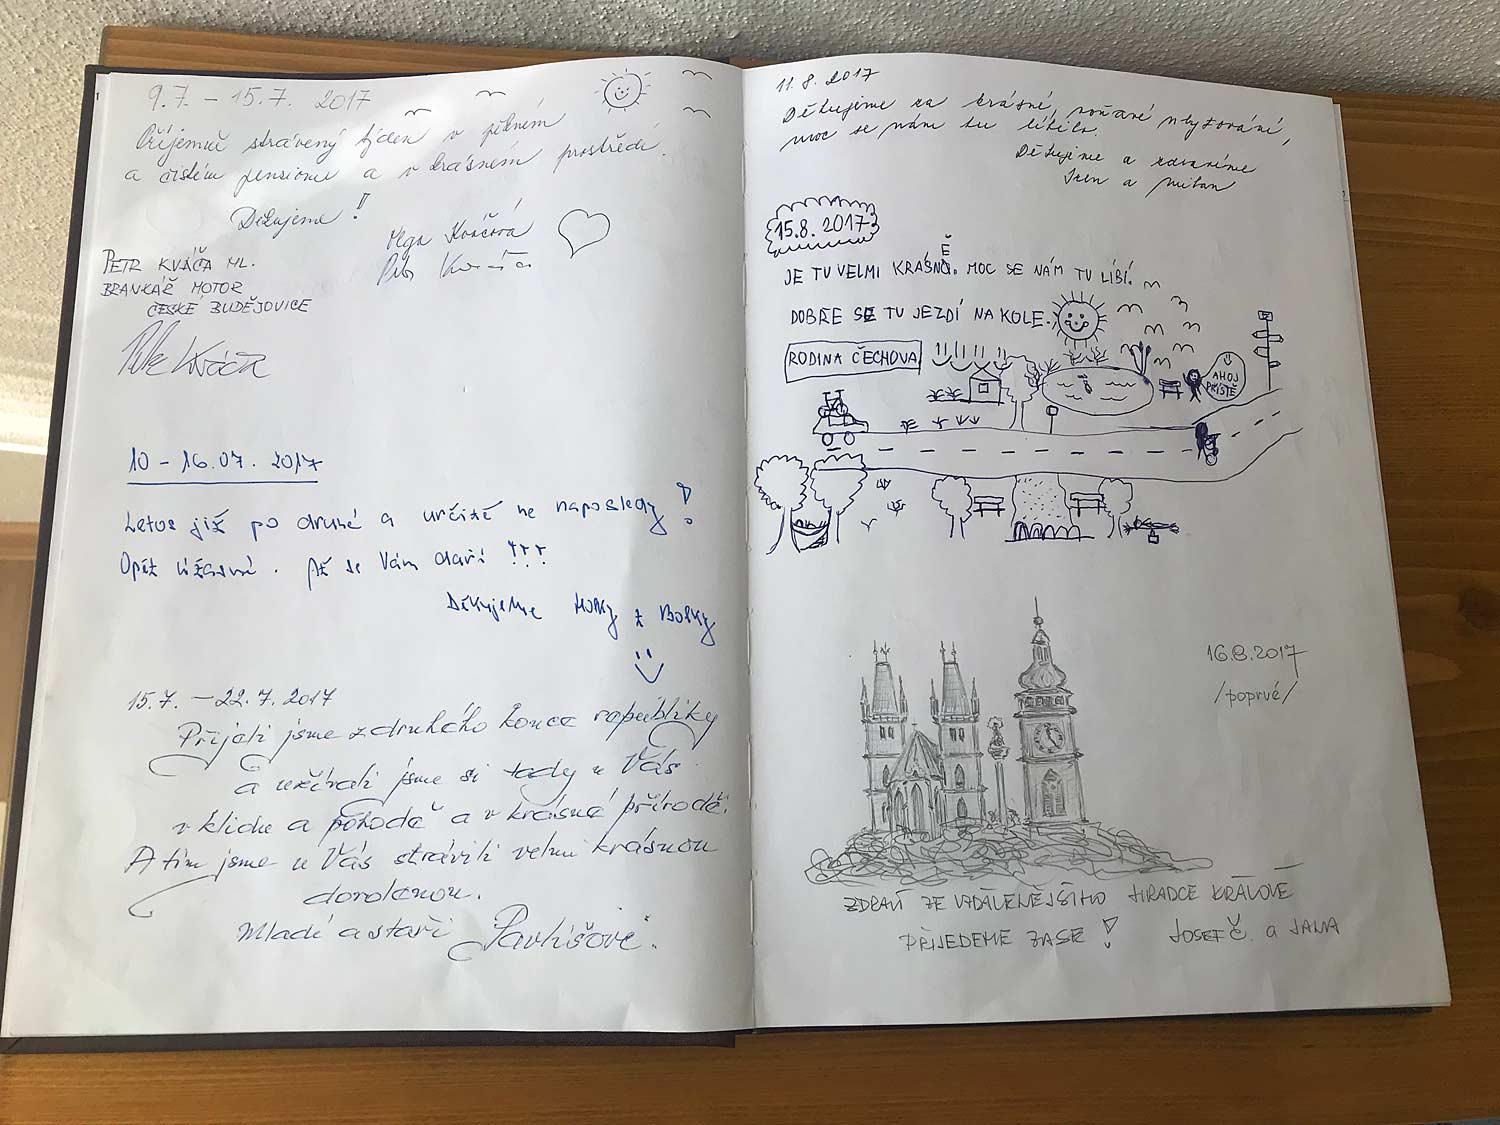 9.7. – 15.7. 2017
Příjemně strávený týden v pěkném
a čistém pensionu a v krásném prostředí.
Děkujeme!!
Olga Kváčová
Petr Kváča
PETR KVÁČA ML.
BRANKÁŘ MOTOR
ČESKÉ BUDĚJOVICE
Petr Kváča
10 – 16.07. 2017
Letos již po druhé a určitě ne naposledy!
Opět úžasné. Ať se Vám daří!!!
Děkujeme z
15.7. – 22.7. 2017
Přijeli jsme z druhého konce republiky
a užívali jsme si tady u Vás
v klidu a pohodě a v krásné přírodě.
A tím jsme u Vás strávili velmi krásnou
dovolenou.
Mladí a staří Pavlišovi.
11.8. 2017
Děkujeme za krásné, voňavé ubytování,
moc se nám tu líbilo.
Děkujeme a zdravíme
a Milan
15.8. 2017
JE TU VELMI KRÁSNĚ. MOC SE NÁM TU LÍBÍ.
DOBŘE SE TU JEZDÍ NA KOLE.
RODINA ČECHOVA
AHOJ
PŘÍŠTĚ
16.8.2017
/poprvé/
ZDRAVÍ ZE VZDÁLENĚJŠÍHO HRADCE KRÁLOVÉ
PŘIJEDEME ZASE! JOSEF Č. a JANA